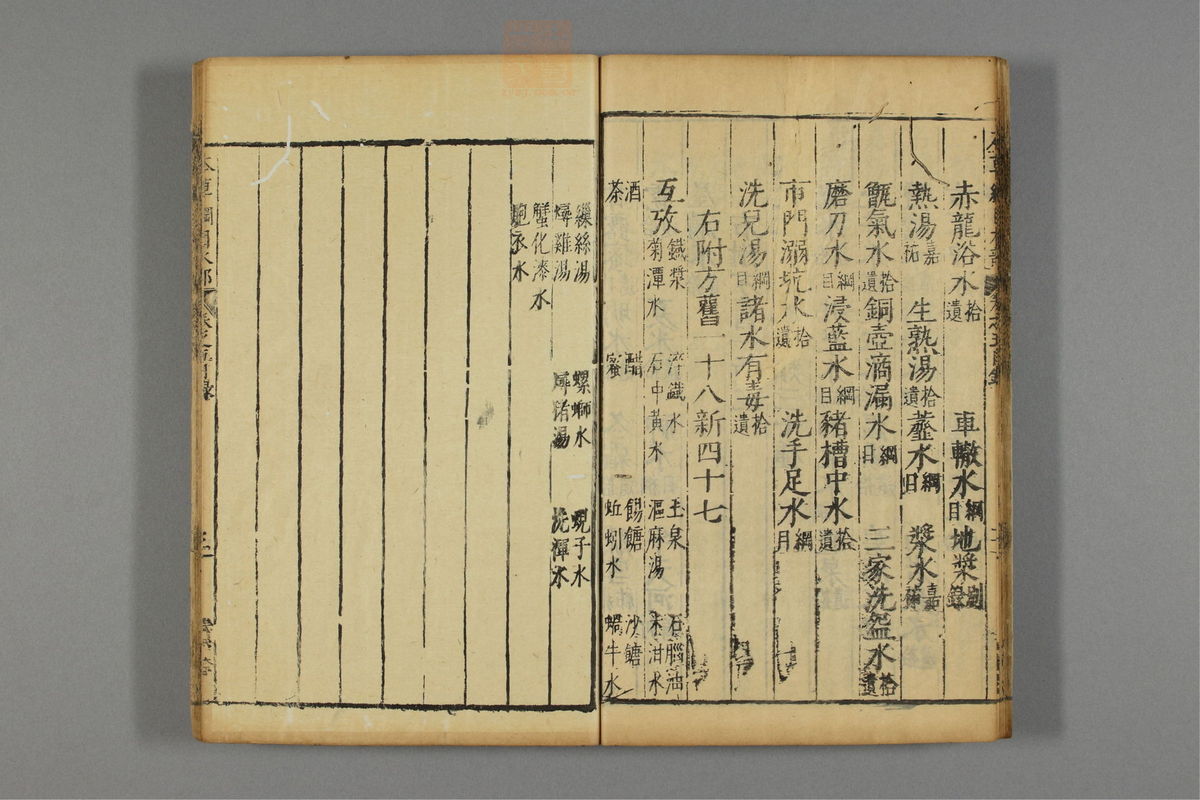 赤龍浴水拾遺 車轍水綱目 地漿別錄
熱湯嘉祐 生熟湯拾遺 虀水綱目 漿水嘉祐
甑氣水拾遺 銅壺滴漏水綱目 三家洗盌水拾遺
磨刀水綱目 浸藍水綱目 豬槽中水拾遺
市門溺坑水拾遺 洗手足水綱目
洗兒湯綱目 諸水有毒拾遺
右附方舊一十八新四十七
互攷 鐵漿 淬鐵水 玉泉 石腦油
菊潭水 石中黃水 漚麻湯 米泔水
酒 醋 餳餹 沙餹
茶 蜜 蚯蚓水 蝸牛水
繅絲湯 螺螄水 蜆子水
燖雞湯 燖豬湯 洗褌水
蟹化漆水
胞衣水